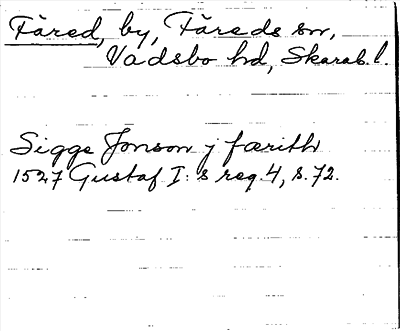 Färed, by, Färeds sn,
Vadsbo hd, Skarab. l.
Sigge Jonson j færith
1527 Gustaf I:s reg. 4, s. 72.